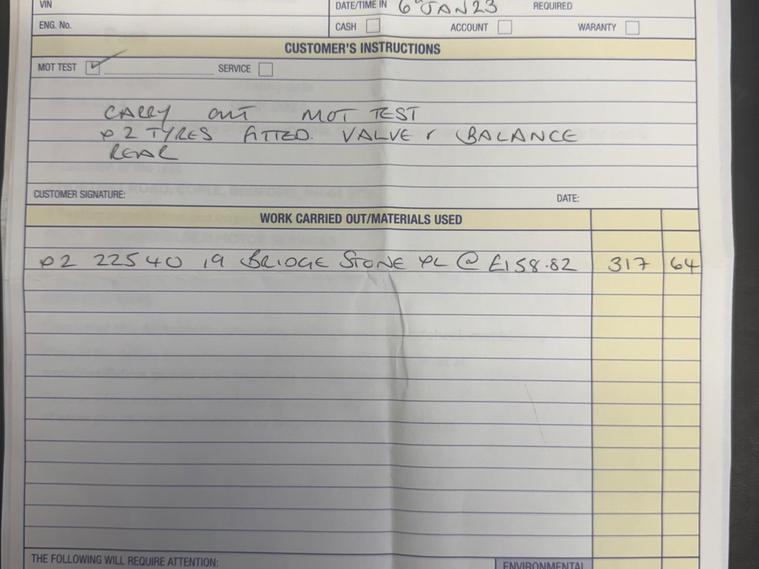 VIN DATE/TIME IN 6th JAN 23 REQUIRED
ENG. No. CASH ACCOUNT WARRANTY
CUSTOMER'S INSTRUCTIONS
MOT TEST SERVICE
CARRY OUT MOT TEST
x2 TYRES FITTED. VALVE & BALANCE
REAR
CUSTOMER SIGNATURE: DATE:
WORK CARRIED OUT/MATERIALS USED
x2 225 40 19 BRIDGE STONE XL @ £158.82 317 64
THE FOLLOWING WILL REQUIRE ATTENTION: ENVIRONMENTAL